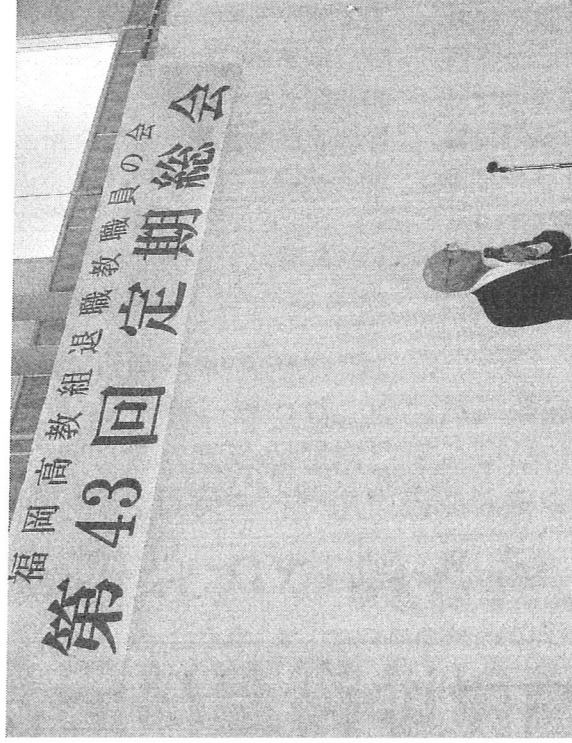 福岡高教組退職教職員の会
第43回定期総会